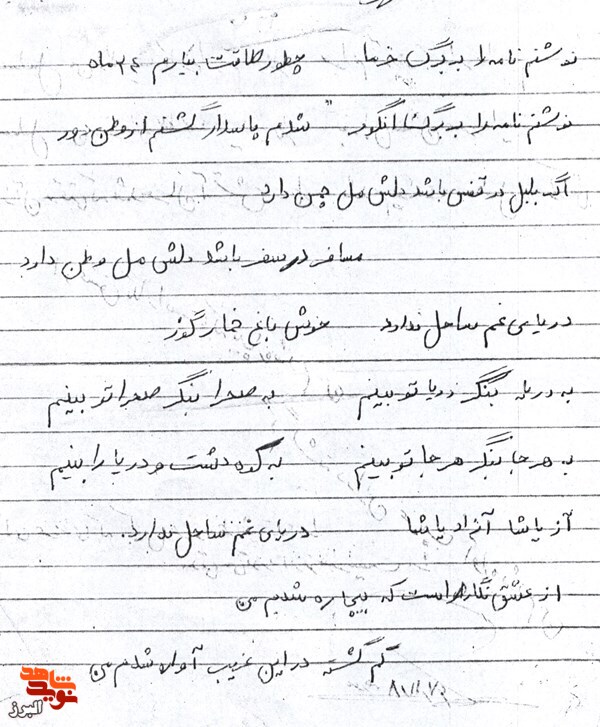 نوشتم نامه را بر برگ خرما چطور طاقت بیارم ۲۴ ماه
نوشتم نامه را بر برگ انگور شدم پاسدار گشتم از وطن دور
اگه بلبل در قفس باشد دلش میل چمن دارد
مسافر در سفر باشد دلش میل وطن دارد
دریای غم ساحل ندارد خوش باغ
به دریا بنگر دریا تو بینم به صحرا بنگر صحرا تو بینم
به هر جا بنگر هر جا تو بینم به کوه دشت و دریا را بینم
آز یاشا آزاد یاشا دریای غم ساحل ندارد.
از عشق نگار است که بیچاره شدیم من
گم گشته در این غریب آواره شدم من
شاهد
نوید
البرز